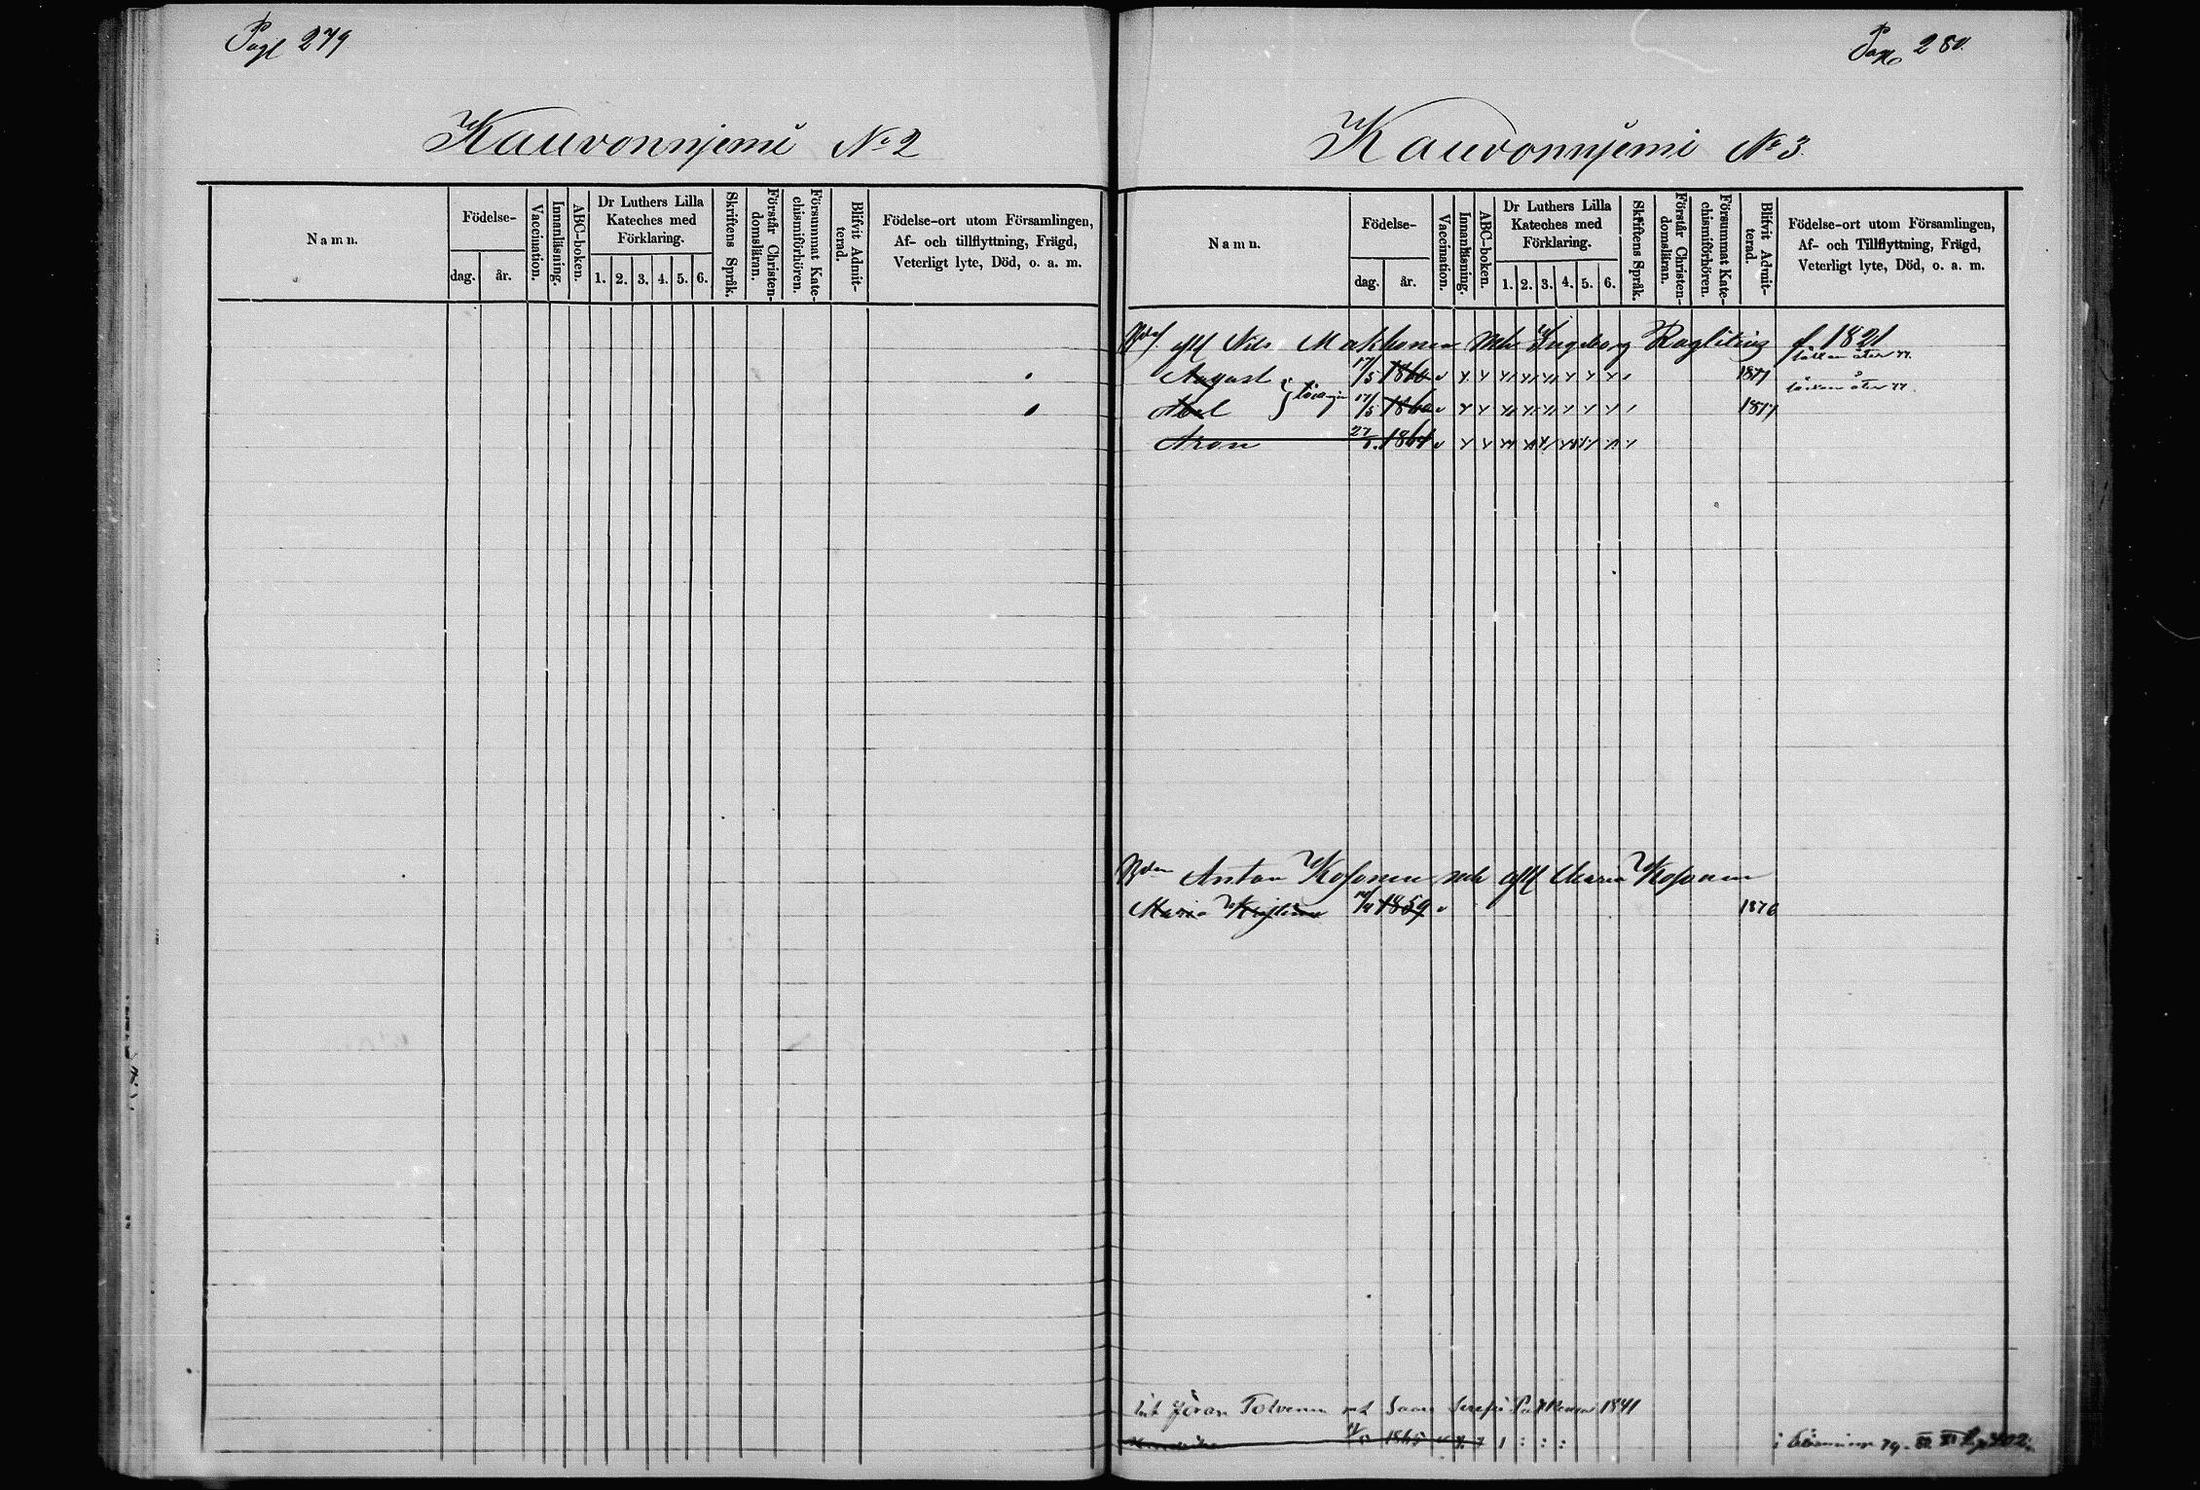 Pag 279
Kauvonnjemi No 2
Namn.
Födelse-
dag.
år.
Vaccination.
Innanläsning.
ABC-boken.
Dr Luthers Lilla
Kateches med
Förklaring.
1. 2. 3. 4. 5. 6.
Skriftens Språk.
Förstår Christen-
domsläran.
Försummat Kate-
chismiförhören.
Blifvit Admit-
terad.
Födelse-ort utom Församlingen,
Af- och tillflyttning, Frägd,
Veterligt lyte, Död, o. a. m.
Pag 280.
Kauvonnjemi No 3.
Namn.
Födelse-
dag.
år.
Vaccination.
Innanläsning.
ABC-boken.
Dr Luthers Lilla
Kateches med
Förklaring.
1. 2. 3. 4. 5. 6.
Skriftens Språk.
Förstår Christen-
domsläran.
Försummat Kate-
chismiförhören.
Blifvit Admit-
terad.
Födelse-ort utom Församlingen,
Af- och Tillflyttning, Frägd,
Veterligt lyte, Död, o. a. m.
Nils Makkonen Ingeborg f. 1821
August 17/5 1860 1877
Abel 17/5 1860 1877
Aron 27 1864
Anton Kosonen Maria Kosonen
Maria 1859 1876
Jöran Tolvanen 1841
1865